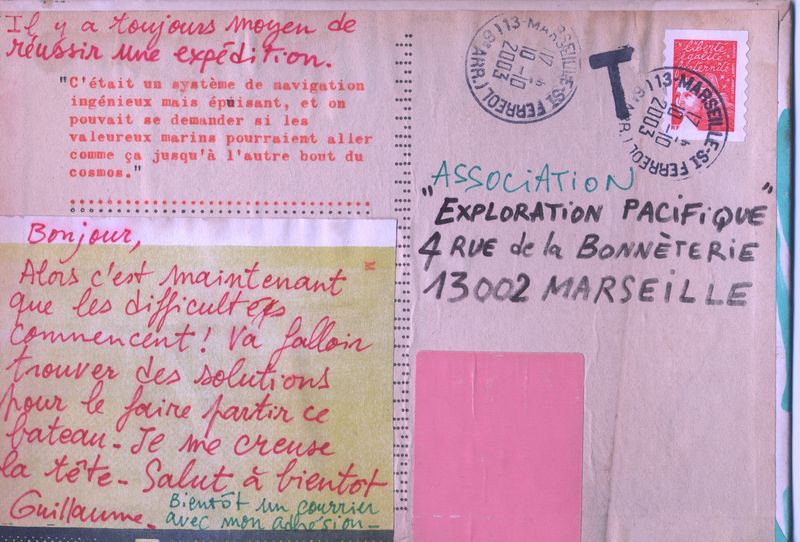 Il y a toujours moyen de
réussir une expédition.
"C'était un système de navigation
ingénieux mais épuisant, et on
pouvait se demander si les
valeureux marins pourraient aller
comme ça jusqu'à l'autre bout du
cosmos."
Bonjour,
Alors c'est maintenant
que les difficultés
commencent! Va falloir
trouver des solutions
pour le faire partir ce
bateau - Je me creuse
la tête - Salut à bientot
Guillaume -
Bientôt un courrier
avec mon adhésion -
13-MARSEILLE-ST FERREOL (6e ARR.)
17
10-10
2003
T
liberté
égalité
fraternité
RF
13-MARSEILLE-ST FERREOL (6e ARR.)
17
10-10
2003
ASSOCIATION
"EXPLORATION PACIFIQUE"
4 RUE de la BONNÈTERIE
13002 MARSEILLE